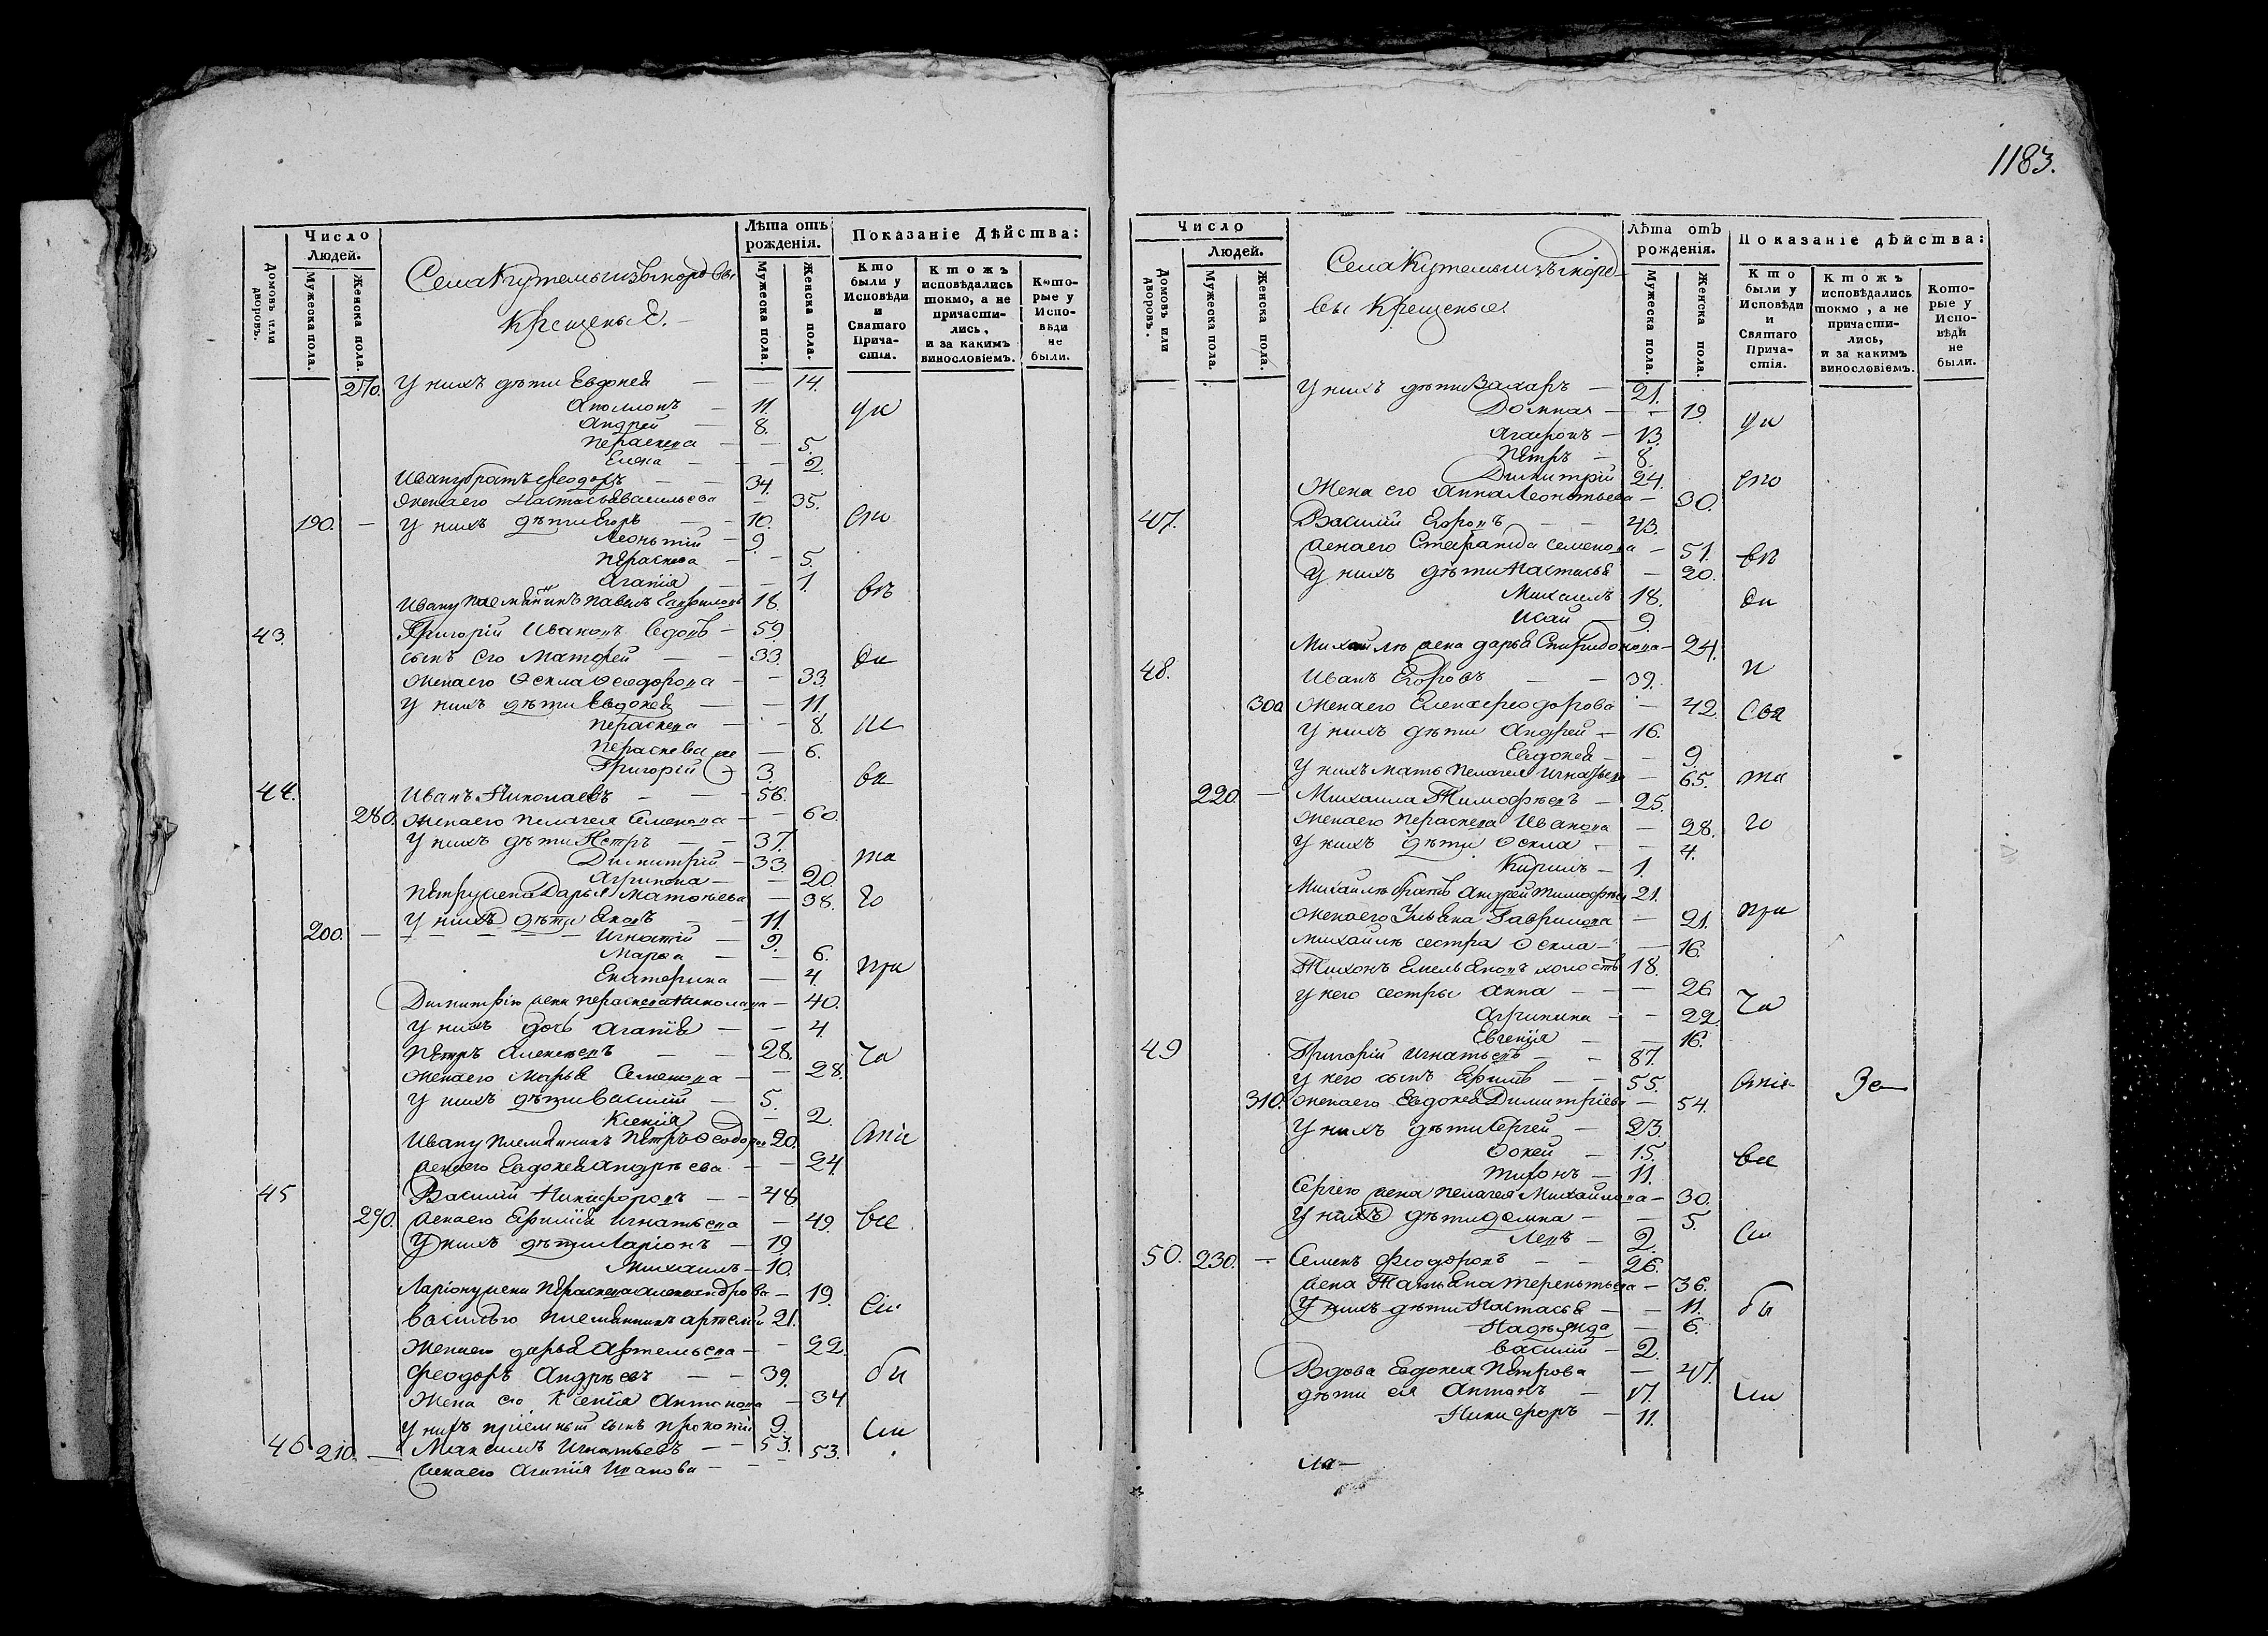 1183.
Число
Людей.
Домовъ или дворовъ.
Мужеска пола.
Женска пола.
Села Кутемы изъ мордвы
Крещеныя.
Лѣта отъ рожденія.
Мужеска пола.
Женска пола.
Показаніе Дѣйства:
Кто были у Исповѣди и Святаго Причастія.
Ктожъ исповѣдались токмо, а не причастились, и за какимъ винословіемъ.
Которые у Исповѣди не были.
270. У нихъ дѣти Евдокея — — 14.
Аполлонъ — 11.
Андрей — 8.
Пераскева — — 5.
Елена — — 2.
Ивану братъ Феодоръ — — 34.
Жена его Настасья Васильева — 35.
190. — У нихъ дѣти Егоръ — — 10.
Леонтий — 9
Пераскева — — 5.
Агапія — — 1.
Ивану племянникъ Павелъ 18.
43. Григорій Ивановъ Седовъ — 59.
сынъ его Матфей — — 33.
Жена его Ѳекла Ѳеодорова — — 33
У нихъ дѣти Евдокея — — 11.
Пераскева — — 8.
Пераскева же — 6.
Григорій — 3.
44. Иванъ Николаевъ — — 56.
280. Жена его Пелагея Семенова — — 60.
У нихъ дѣти Петръ — — 37.
Димитрій — 33.
Агрипена — — 20.
Петру жена Дарья Матвеева — 38.
У нихъ дѣти — — 11.
200. — Игнатій — 9.
Марфа — — 6.
Екатерина — 4.
Димитрію жена Пераскева Николаева — 40.
У нихъ дочь Агапія — — 4.
Петръ Алексеевъ — — 28.
Жена его Марья Семенова — — 28.
У нихъ дѣти Василий — 5.
Ксенія — 2.
Ивану племянникъ Петръ Ѳеодоров 20.
Жена его Евдокея Андрѣева — — 24
45 Василий Никифоровъ — — 48.
290. Жена его Игнатьева — 49.
У нихъ дѣти Ларіонъ — 19
Михаилъ — 10.
Ларіону жена Пераскева Александрова — 19.
Василью племянникъ Артемій 21.
Жена его Дарья Артемьева — — 22.
Феодоръ Андрѣевъ — — 39.
Жена его Ксенія Антонова — 34
У нихъ пріемный сынъ Прокопій 9.
46 210. — Максимъ Игнатьевъ — — 53.
Жена его Агапія Иванова — — 53.
Число
Людей.
Домовъ или дворовъ.
Мужеска пола.
Женска пола.
Села Кутемы изъ морд-
вы Крещеные.
Лѣта отъ рожденія.
Мужеска пола.
Женска пола.
Показаніе дѣйства:
Кто были у Исповѣди и Святаго Причастія.
Ктожъ исповѣдались токмо, а не причастились, и за какимъ винословіемъ.
Которые у Исповѣди не были.
У нихъ дѣти Захаръ — 21.
Домна — — 19.
Агафонъ — 13.
Петръ — 8.
Димитрій 24.
Жена его Анна Леонтьева — 30.
47. Василий Егоровъ — — 43.
Жена его Степанида Семенова — 51.
У нихъ дѣти Настасья — 20.
Михаилъ 18.
Исай — 9.
Михайлѣ жена Дарья Спиридонова — 24.
48. Иванъ Егоровъ — — 39.
300 Жена его Елена Феодорова — 42.
У нихъ дѣти Андрей — 16.
Евдокея — — 9
У нихъ мать Пелагея Игнатьева — 65.
220. — Михаила Тимофѣевъ — 25.
Жена его Пераскева Иванова — 28.
У нихъ дѣти Ѳекла — — 4.
Кирилъ — 1.
Михайлѣ братъ Андрей Тимофѣев 21.
Жена его Ульяна Гаврилова — 21.
Михайлѣ сестра Ѳекла — — 16.
Тихонъ Емельяновъ холостъ 18.
у него сестры Анна — — — 26
Агрипина — — 22.
Евгенія — — 16.
49 Григорій Игнатьевъ — — 87.
У него сынъ — — 55.
310. Жена его Евдокея Димитріева — 54.
У нихъ дѣти Сергей — 23.
Ѳокей — 15.
11.
Сергею жена Пелагея Михайлова — 30.
У нихъ дѣти Домна — — 5.
Левъ — 2.
50. 230. — Семенъ Феодоровъ — — 26.
Жена Татьяна Терентьева — 36.
У нихъ дѣти Настасья — — 11.
Надежда — 6.
Василий — 2.
Вдова Евдокея Петрова — 47.
дѣти ея Антонъ — 17.
Никифоръ — 11.